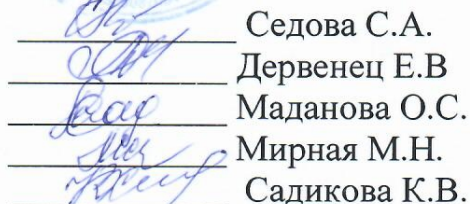 Седова С.А.
Дервенец Е.В
Маданова О.С.
Мирная М.Н.
Садикова К.В.